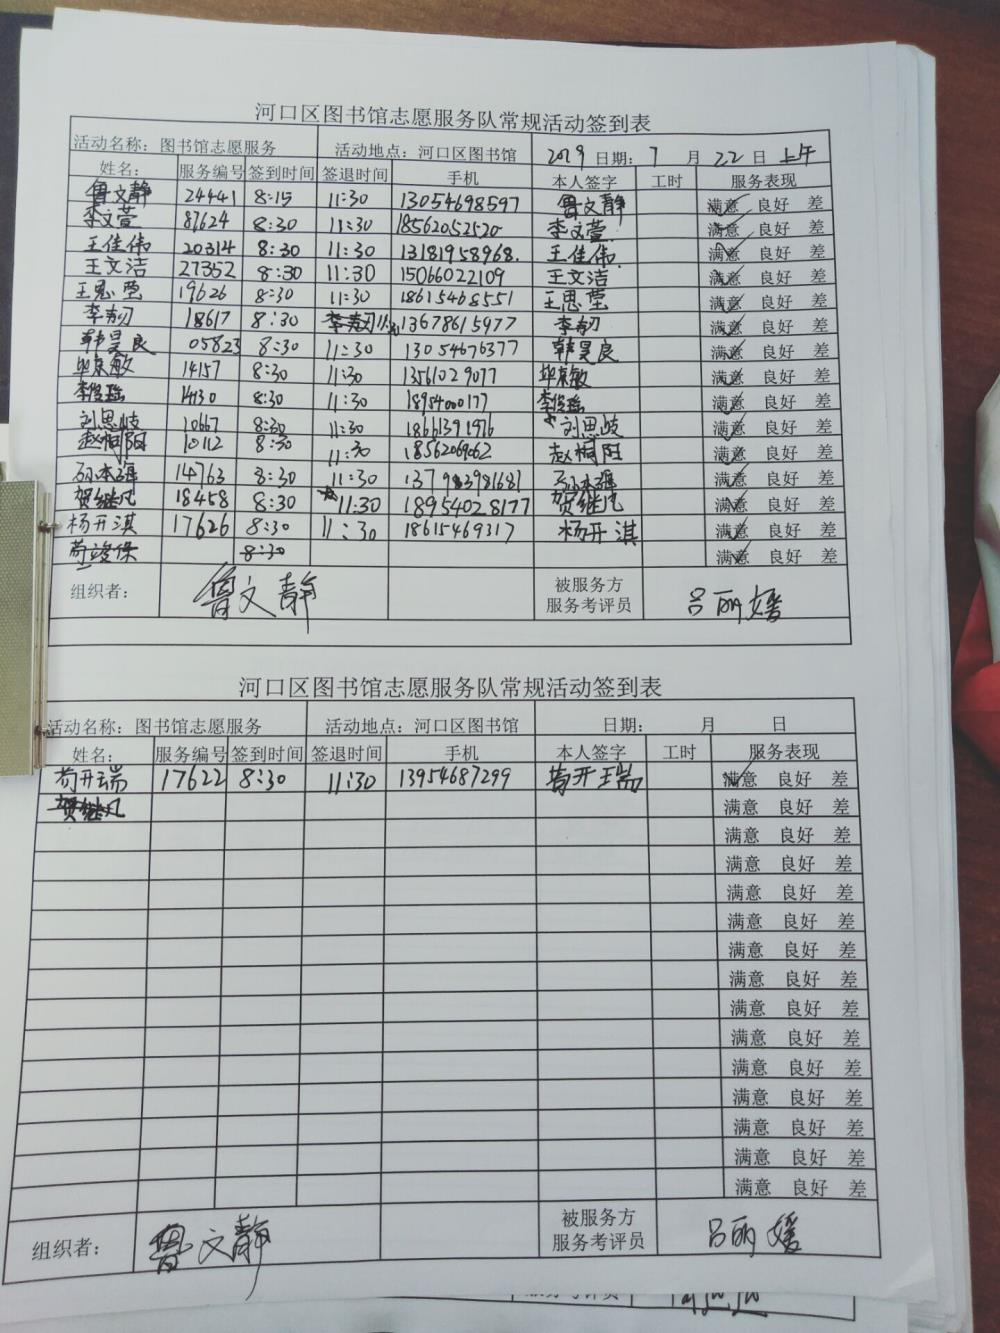 河口区图书馆志愿服务队常规活动签到表
活动名称：图书馆志愿服务 活动地点：河口区图书馆 2019 日期：7 月 22 日 上午
姓名： 服务编号 签到时间 签退时间 手机 本人签字 工时 服务表现
鲁文静 24441 8:15 11:30 13054698597 鲁文静 满意 良好 差
李文萱 87624 8:30 11:30 18562052520 李文萱 满意 良好 差
王佳伟 20314 8:30 11:30 13181958968. 王佳伟. 满意 良好 差
王文洁 27352 8:30 11:30 15066022109 王文洁 满意 良好 差
王思莹 19626 8:30 11:30 18615468551 王思莹 满意 良好 差
18617 8:30 11:30 13678615977 满意 良好 差
韩昊良 05823 8:30 11:30 13054676377 韩昊良 满意 良好 差
14157 8:30 11:30 13561029077 满意 良好 差
李俊瑶 8:30 11:30 18954000177 李俊瑶 满意 良好 差
刘思岐 10667 8:30 11:30 18661391976 刘思岐 满意 良好 差
赵桐阳 10112 8:30 11:30 1856206062 赵桐阳 满意 良好 差
14763 8:30 11:30 满意 良好 差
贺继凡 18458 8:30 11:30 18954028177 贺继凡 满意 良好 差
杨开淇 17626 8:30 11:30 18615469317 杨开淇 满意 良好 差
8:30 满意 良好 差
组织者： 鲁文静 被服务方 吕丽媛
服务考评员
河口区图书馆志愿服务队常规活动签到表
活动名称：图书馆志愿服务 活动地点：河口区图书馆 日期： 月 日
姓名： 服务编号 签到时间 签退时间 手机 本人签字 工时 服务表现
苟开瑞 17622 8:30 11:30 13954687299 苟开瑞 满意 良好 差
贺继凡 满意 良好 差
满意 良好 差
满意 良好 差
满意 良好 差
满意 良好 差
满意 良好 差
满意 良好 差
满意 良好 差
满意 良好 差
满意 良好 差
满意 良好 差
满意 良好 差
满意 良好 差
满意 良好 差
组织者： 鲁文静 被服务方 吕丽媛
服务考评员
服务考评员